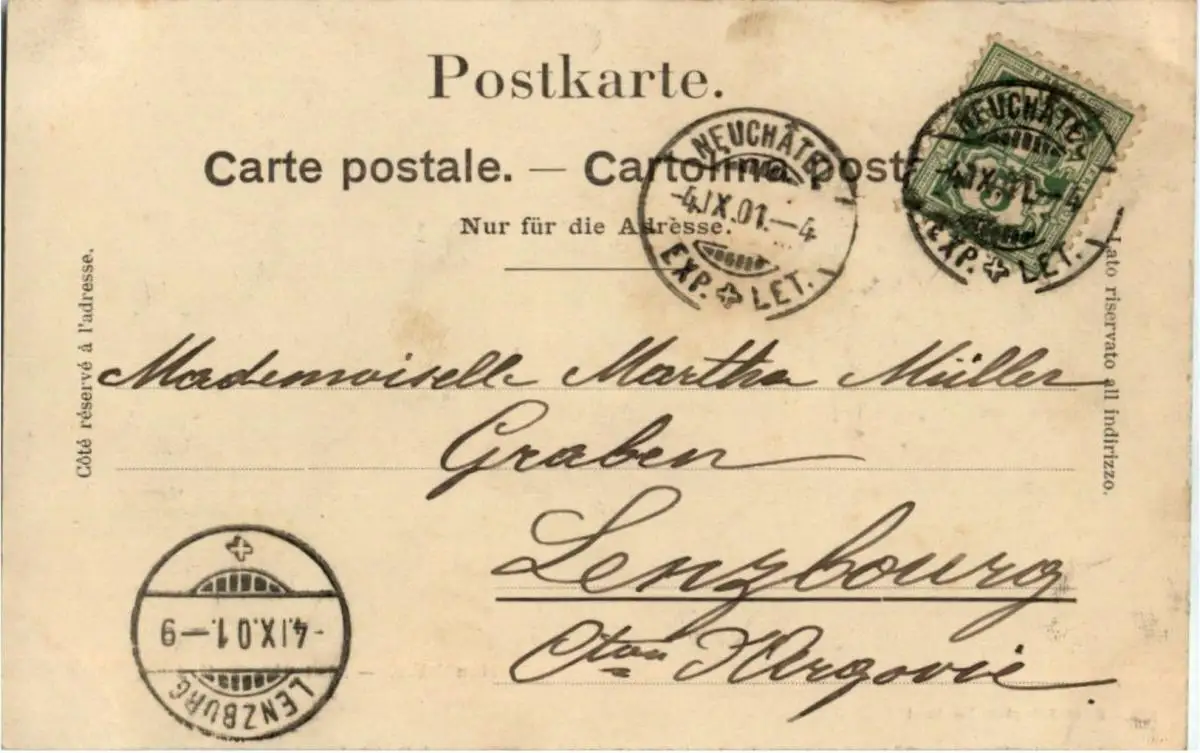 Postkarte.
Carte postale. — Cartolina posta
Nur für die Adresse.
NEUCHÂTEL
-4.IX.01.—4
EXP. LET.
NEUCHÂTEL
-4.IX.01.—4
EXP. LET.
Côté réservé à l'adresse.
Lato riservato all indirizzo.
Mademoiselle Martha Müller
Graben
Lenzbourg
Cton Argovie
-4.IX.01.—9
LENZBURG